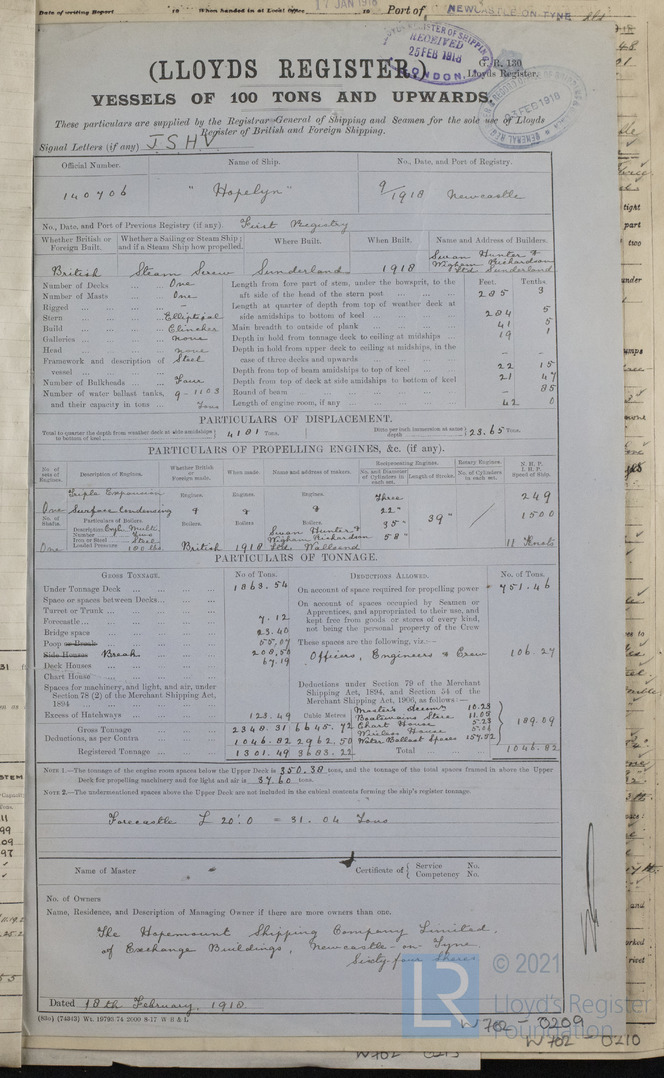 Date of writing Report 18 When handed in at Local Office 17 JAN 1918 18 Port of NEWCASTLE ON TYNE
LLOYD'S REGISTER OF SHIPPING
RECEIVED
25 FEB 1918
LONDON.
G. R. 130
Lloyds Register.
(LLOYDS REGISTER.)
VESSELS OF 100 TONS AND UPWARDS.
23 FEB 1918
These particulars are supplied by the Registrar-General of Shipping and Seamen for the sole use of Lloyds
Register of British and Foreign Shipping.
Signal Letters (if any) J S H V
Official Number. Name of Ship. No., Date, and Port of Registry.
140706 "Hopelyn" 9/1918 Newcastle
No., Date, and Port of Previous Registry (if any) First Registry
Whether British or Foreign Built. Whether a Sailing or Steam Ship; and if a Steam Ship how propelled. Where Built. When Built. Name and Address of Builders.
British Steam Screw Sunderland 1918 Swan Hunter & Wigham Richardson Ltd Sunderland
Number of Decks One
Number of Masts One
Rigged –
Stern Elliptical
Build Clincher
Galleries none
Head none
Framework and description of vessel Steel
Number of Bulkheads Four
Number of water ballast tanks, and their capacity in tons 9 - 1103 Tons
Feet. Tenths
Length from fore part of stem, under the bowsprit, to the aft side of the head of the stern post 285 3
Length at quarter of depth from top of weather deck at side amidships to bottom of keel 284 5
Main breadth to outside of plank 41 5
Depth in hold from tonnage deck to ceiling at midships 19 1
Depth in hold from upper deck to ceiling at midships, in the case of three decks and upwards – –
Depth from top of beam amidships to top of keel 22 15
Depth from top of deck at side amidships to bottom of keel 21 47
Round of beam – 85
Length of engine room, if any 42 0
PARTICULARS OF DISPLACEMENT.
Total to quarter the depth from weather deck at side amidships to bottom of keel 4181 Tons. Ditto per inch immersion at same depth 23.65 Tons.
PARTICULARS OF PROPELLING ENGINES, &c. (if any).
No. of sets of Engines. Description of Engines. Whether British or Foreign made. When made. Name and address of makers. Reciprocating Engines. No. and Diameter of Cylinders in each set. Length of Stroke. Rotary Engines. No. of Cylinders in each set. N. H. P. I. H. P. Speed of Ship.
Triple Expansion Engines. Engines. Engines. Three 249
One Surface Condensing & & & 22" 39" 1500
No. of Shafts. Particulars of Boilers. Boilers. Boilers. Boilers. 35"
Description Cyl. Multi. Swan Hunter & 58"
Number Two Wigham Richardson
Iron or Steel Steel
One Loaded Pressure 180 lbs British 1918 Ltd Wallsend 11 Knots
PARTICULARS OF TONNAGE.
GROSS TONNAGE. No of Tons. DEDUCTIONS ALLOWED. No. of Tons.
Under Tonnage Deck 1863.54
Space or spaces between Decks
Turret or Trunk
Forecastle 7.12
Bridge space 23.40
Poop or Break 55.07
Side Houses Break 208.50
Deck Houses 67.19
Chart House
Spaces for machinery, and light, and air, under Section 78 (2) of the Merchant Shipping Act, 1894
Excess of Hatchways 123.49 Cubic Metres
Gross Tonnage 2348.31 6645.72
Deductions, as per Contra 1046.82 2962.50
Registered Tonnage 1301.49 3683.22
On account of space required for propelling power 751.46
On account of spaces occupied by Seamen or Apprentices, and appropriated to their use, and kept free from goods or stores of every kind, not being the personal property of the Crew
These spaces are the following, viz.:—
Officers, Engineers & Crew 106.27
Deductions under Section 79 of the Merchant Shipping Act, 1894, and Section 54 of the Merchant Shipping Act, 1906, as follows:—
Master's Accom 10.23
Boatswains Store 11.05
Chart House 5.23
Wireless House 5.06
Water Ballast Spaces 157.52
189.09
Total 1046.82
NOTE 1.—The tonnage of the engine room spaces below the Upper Deck is 350.38 tons, and the tonnage of the total spaces framed in above the Upper Deck for propelling machinery and for light and air is 37.60 tons.
NOTE 2.—The undermentioned spaces above the Upper Deck are not included in the cubical contents forming the ship's register tonnage:
Forecastle L 20'.0 = 31.04 Tons
Name of Master Certificate of { Service No. Competency No.
No. of Owners
Name, Residence, and Description of Managing Owner if there are more owners than one.
The Hopemount Shipping Company Limited.
of Exchange Buildings, Newcastle-on-Tyne.
Sixty-four Shares
Dated 18th February, 1918.
(83a) (74343) Wt. 19793/74 2000 8-17 W B & L
LR
© 2021
Lloyd's Register
Foundation
W702-0209
W702-0210